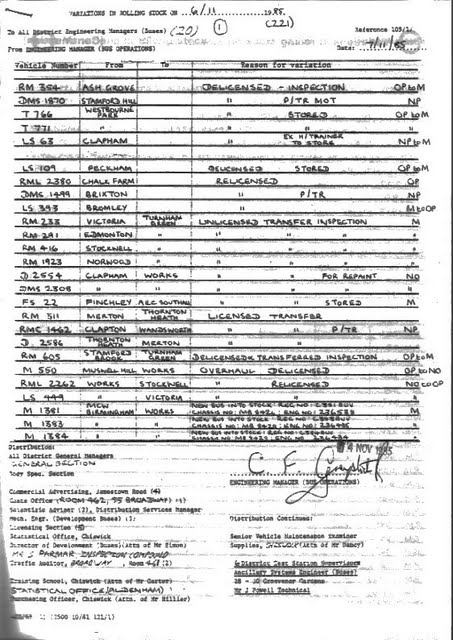 VARIATIONS IN ROLLING STOCK ON 6/11 1985
(221)
To All District Engineering Managers (Buses) (20) (1) Reference 105/1/
From ENGINEERING MANAGER (BUS OPERATIONS) Date: 7/11/85
Vehicle Number From To Reason for variation
RM 354 ASH GROVE DELICENSED - INSPECTION OP to M
DMS 1870 STAMFORD HILL " P/TR MOT NP
T 766 WESTBOURNE PARK " STORED OP to M
T 771 " " " "
LS 63 CLAPHAM " EX H/TRAINER TO STORE NP to M
LS 109 PECKHAM DELICENSED STORED OP to M
RML 2380 CHALK FARM RELICENSED OP
DMS 1499 BRIXTON " P/TR NP
LS 343 BROMLEY " M to OP
RM 233 VICTORIA TURNHAM GREEN UNLICENSED TRANSFER INSPECTION M
RM 291 EDMONTON " " " " "
RM 416 STOCKWELL " " " " "
RM 1923 NORWOOD " " " " "
D 2554 CLAPHAM WORKS " " FOR REPAINT NO
DMS 2308 " " " " " "
FS 22 FINCHLEY A.E.C. SOUTHALL " " STORED M
RM 311 MERTON THORNTON HEATH LICENSED TRANSFER
RMC 1462 CLAPTON WANDSWORTH " " P/TR NP
D 2586 THORNTON HEATH MERTON " "
RM 605 STAMFORD BROOK TURNHAM GREEN DELICENSED & TRANSFERRED INSPECTION OP to M
M 550 MUSWELL HILL WORKS OVERHAUL DELICENSED OP to NO
RML 2262 WORKS STOCKWELL " RELICENSED NO to OP
LS 449 " VICTORIA " " "
M 1381 MCW BIRMINGHAM WORKS NEW BUS INTO STOCK REG NO
CHASSIS NO: ENG NO:
M 1383 " " NEW BUS INTO STOCK REG NO
CHASSIS NO: ENG NO:
M 1384 " " NEW BUS INTO STOCK REG NO
CHASSIS NO: ENG NO:
Distribution:
All District General Managers
GENERAL SECTION
Body Spec. Section
4 NOV 1985
ENGINEERING MANAGER (BUS OPERATIONS)
Commercial Advertising, Jamestown Road (4)
Costs Office (ROOM 462, 55 BROADWAY)
Scientific Adviser (2), Distribution Services Manager
Mech. Engr. (Development Buses) (1) Distribution Continued:
Licensing Section
Statistical Office, Chiswick Senior Vehicle Maintenance Examiner
Director of Development (Buses) (Attn of Mr Simon) Supplies, (Attn of Mr Dancy)
MR S PARMAR INSPECTION COMPOUND
Traffic Auditor, BROADWAY, Room (2) 6 District Test Station Supervisors
Ancillary Systems Engineer (Buses)
Training School, Chiswick (Attn of Mr Carter) 28 - 30 Grosvenor Gardens
STATISTICAL OFFICE (ALDENHAM) Mr J Powell Technical
Purchasing Officer, Chiswick (Attn. of Mr Hillier)
(2500 10/81 121/1)